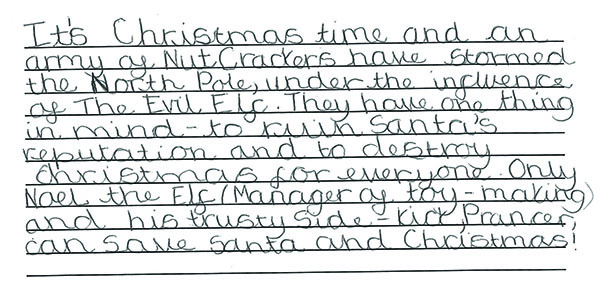 It's Christmas time and an
army of NutCrackers have stormed
the North Pole, under the influence
of The Evil Elf. They have one thing
in mind - to ruin Santa's
reputation and to destroy
Christmas for everyone. Only
Nael the Elf (Manager of toy-making)
and his trusty Side-kick, Prancer,
can save Santa and Christmas!